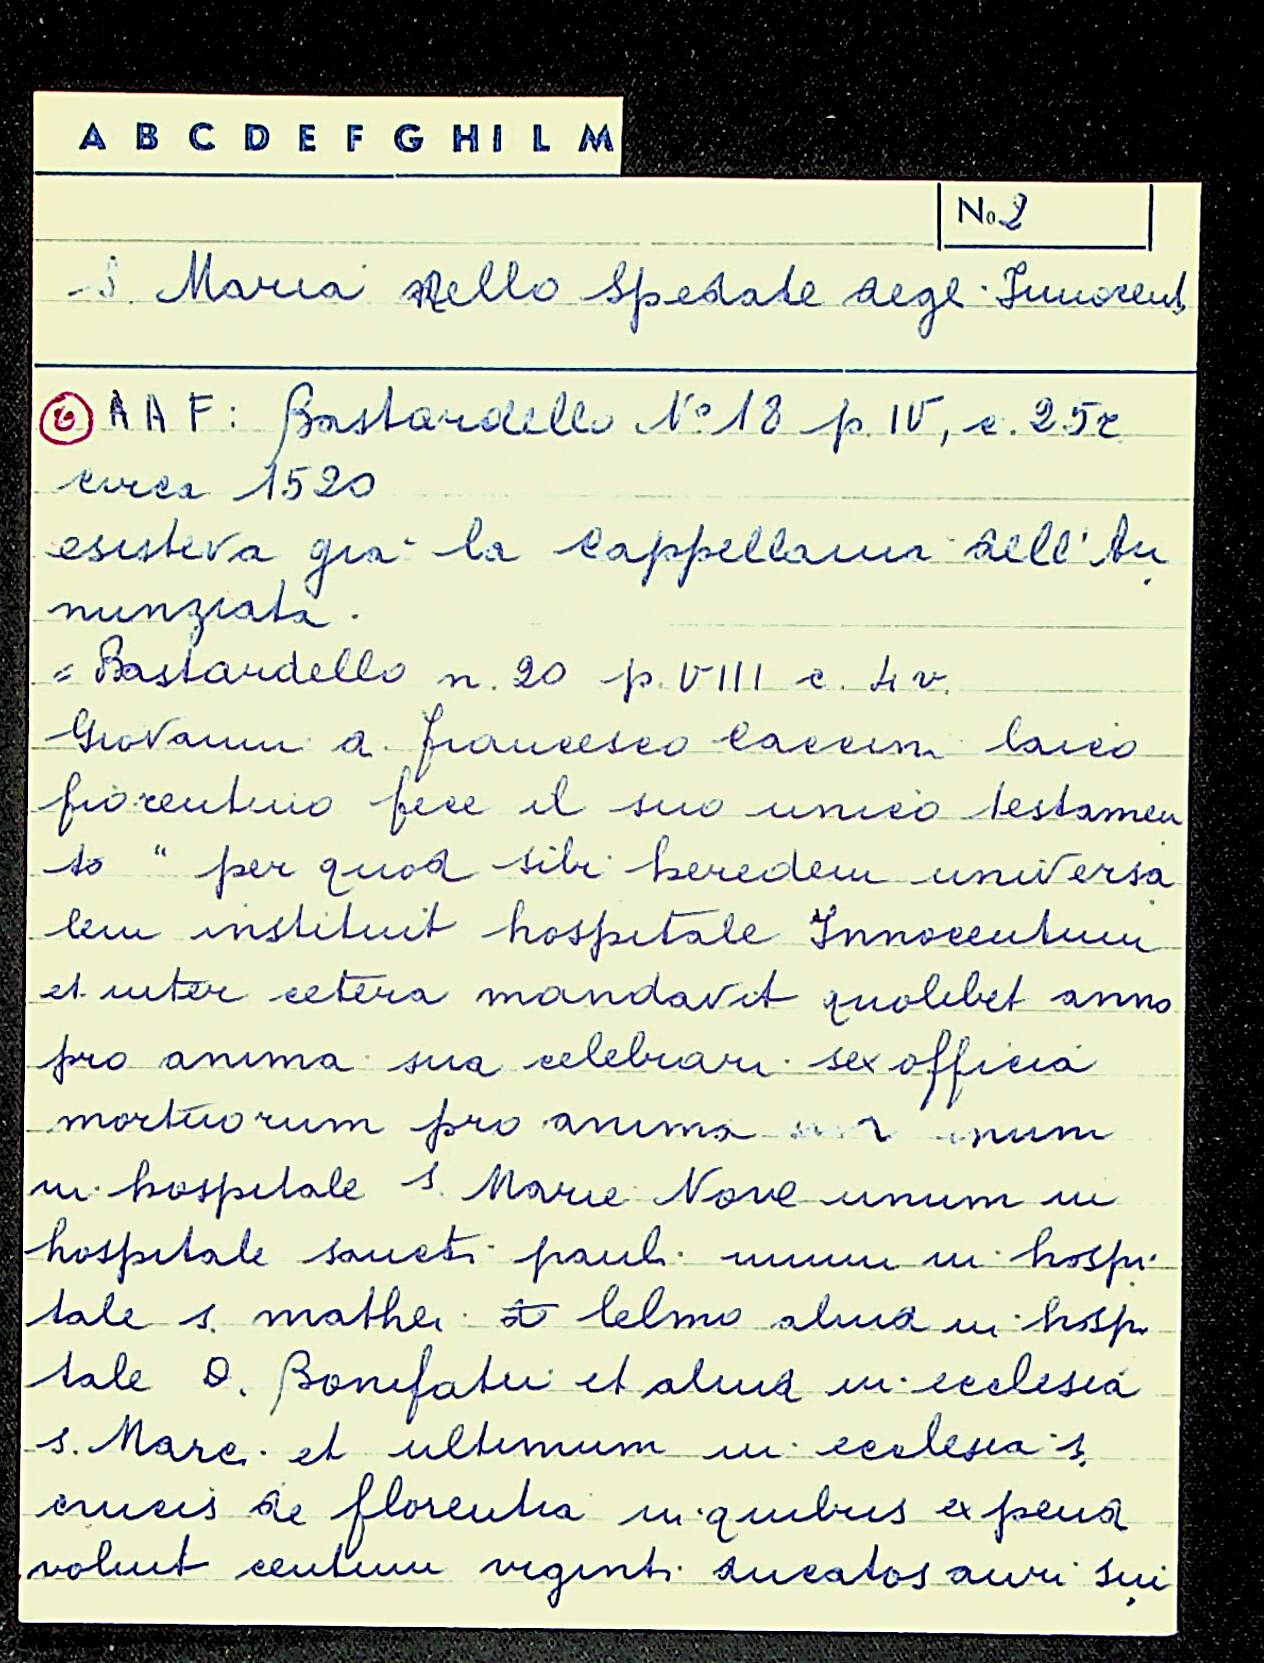 A B C D E F G H I L M
No 2
S. Maria nello Spedale degl. Innocenti
6 A A F: Bastardello N° 18 p. IV, c. 25r
circa 1520
esisteva gia la cappellania dell'An
nunziata.
= Bastardello n. 20 p. VIII c. 4 v.
Giovanni d. francesco Caccini laico
fiorentino fece il suo unico testamen
to " per quod sibi heredem universa
lem instituit hospitale Innocentum
et inter cetera mandavit quolibet anno
pro anima sua celebrari sex officia
mortuorum pro anima unum
in hospitale S. Marie Nove unum in
hospitale sancti pauli unum in hospi
tale s. mathei lelmo aliud in hospi
tale D. Bonifatii et aliud in ecclesia
s. Marci et ultimum in ecclesia s.
crucis de florentia in quibus expend
voluit centum viginti ducatos auri sui